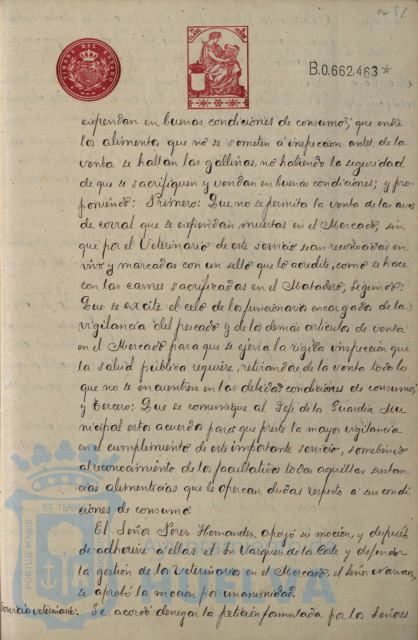 TIMBRE DEL ESTADO
B.0.662.463*
expendan en buenas condiciones de consumo; que entre
los alimentos que no se someten á inspección antes de la
venta se hallan las gallinas, no habiendo la seguridad
de que se sacrifiquen y vendan en buenas condiciones; y pro-
poniendo: Primero: Que no se permita la venta de las aves
de corral que se expendan muertas en el Mercado, sin
que por el Veterinario de este servicio sean reconocidas en
vivo y marcadas con un sello que lo acredite, como se hace
con las carnes sacrificadas en el Matadero, Segundo:
Que se excite el celo de los funcionarios encargados de la
vigilancia del pescado y de los demás artículos de venta
en el Mercado para que se ejerza la rígida inspección que
la salud pública requiere, retirando de la venta todo lo
que no se encuentren en las debidas condiciones de consumo;
y Tercero: Que se comunique al Jefe de la Guardia Mu-
nicipal este acuerdo para que preste la mayor vigilancia
en el cumplimiento de este importante servicio, sometiendo
al reconocimiento de los facultativos todas aquellas sustan-
cias alimenticias que le ofrezcan dudas respecto a sus condi-
ciones de consumo.
El Señor Perez Hernandez, apoyó su moción, y después
de adherirse á ellas el Sr. Vazquez de la Corte y defender
la gestión de los Veterinarios en el Mercado, el señor
se aprobó la moción por unanimidad.
Servicio veterinario: Se acordó denegar la petición formulada por los Señores
PORTUS MARIS ET TERRAE
HUELVA